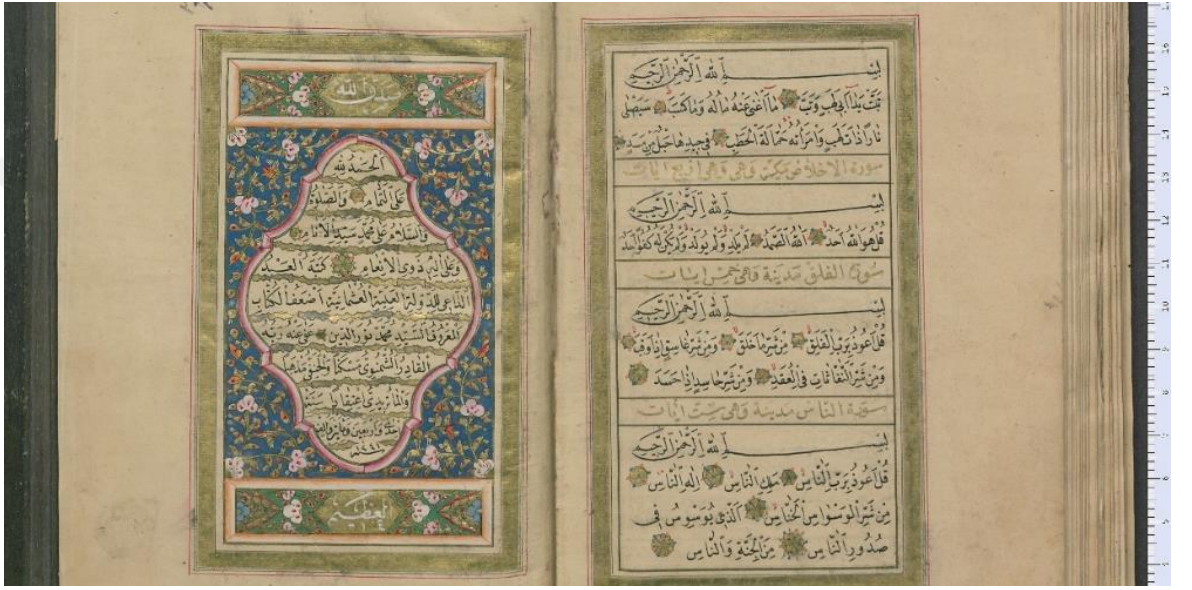 بِسْمِ اللهِ الرَّحْمٰنِ الرَّحِيمِ
تَبَّتْ يَدَا أَبِي لَهَبٍ وَتَبَّ مَا أَغْنَى عَنْهُ مَالُهُ وَمَا كَسَبَ سَيَصْلَى
نَارًا ذَاتَ لَهَبٍ وَامْرَأَتُهُ حَمَّالَةَ الْحَطَبِ فِي جِيدِهَا حَبْلٌ مِنْ مَسَدٍ
سورة الاخلاص مكية وهي وهي اربع ايات
بِسْمِ اللهِ الرَّحْمٰنِ الرَّحِيمِ
قُلْ هُوَ اللهُ أَحَدٌ اللهُ الصَّمَدُ لَمْ يَلِدْ وَلَمْ يُولَدْ وَلَمْ يَكُنْ لَهُ كُفُوًا أَحَدٌ
سورة الفلق مدينة وهي خمس ايات
بِسْمِ اللهِ الرَّحْمٰنِ الرَّحِيمِ
قُلْ أَعُوذُ بِرَبِّ الْفَلَقِ مِنْ شَرِّ مَا خَلَقَ وَمِنْ شَرِّ غَاسِقٍ إِذَا وَقَبَ
وَمِنْ شَرِّ النَّفَّاثَاتِ فِي الْعُقَدِ وَمِنْ شَرِّ حَاسِدٍ إِذَا حَسَدَ
سورة الناس مدينة وهي ست ايات
بِسْمِ اللهِ الرَّحْمٰنِ الرَّحِيمِ
قُلْ أَعُوذُ بِرَبِّ النَّاسِ مَلِكِ النَّاسِ إِلٰهِ النَّاسِ
مِنْ شَرِّ الْوَسْوَاسِ الْخَنَّاسِ الَّذِي يُوَسْوِسُ فِي
صُدُورِ النَّاسِ مِنَ الْجِنَّةِ وَالنَّاسِ
صدق الله
الحمد لله
على التمام والصلوة
والسلام على محمد سيد الانام
وعلى اله ذوي الانعام كتبه العبد
الداعي للدولة العلية العثمانية اضعف الكتاب
المعروف السيد محمد نور الدين عفي عنه ربه
القادر الشمنوي مسكنا والحنفي مذهبا
والماتريدي اعتقادا سنة
احد واربعين ومأتين والف
١٢٤١
العظيم